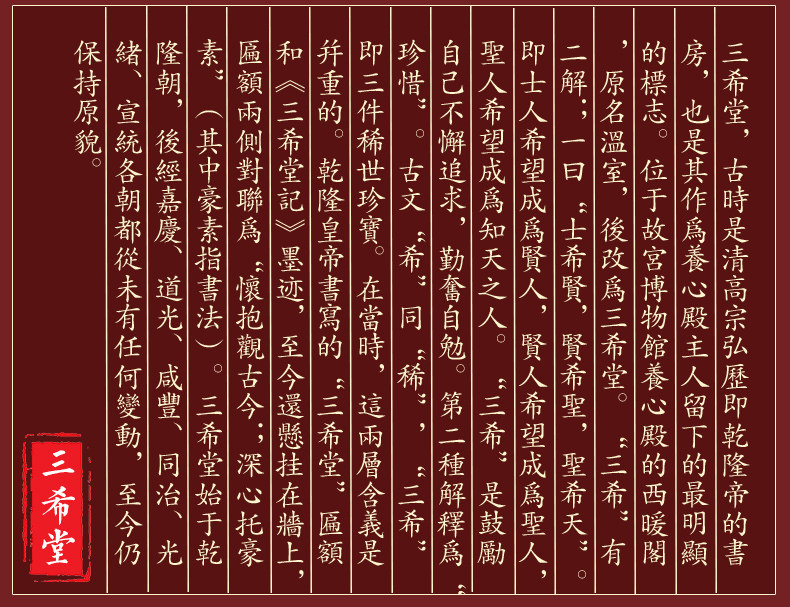 三希堂，古時是清高宗弘歷即乾隆帝的書
房，也是其作爲養心殿主人留下的最明顯
的標志。位于故宮博物館養心殿的西暖閣
，原名溫室，後改爲三希堂。“三希”有
二解；一曰“士希賢，賢希聖，聖希天”。
即士人希望成爲賢人，賢人希望成爲聖人，
聖人希望成爲知天之人。“三希”是鼓勵
自己不懈追求，勤奮自勉。第二種解釋爲“
珍惜”。古文“希”同“稀”，“三希”
即三件稀世珍寶。在當時，這兩層含義是
幷重的。乾隆皇帝書寫的“三希堂”匾額
和《三希堂記》墨迹，至今還懸挂在牆上，
匾額兩側對聯爲“懷抱觀古今；深心托豪
素”（其中豪素指書法）。三希堂始于乾
隆朝，後經嘉慶、道光、咸豐、同治、光
緒、宣統各朝都從未有任何變動，至今仍
保持原貌。
三希堂